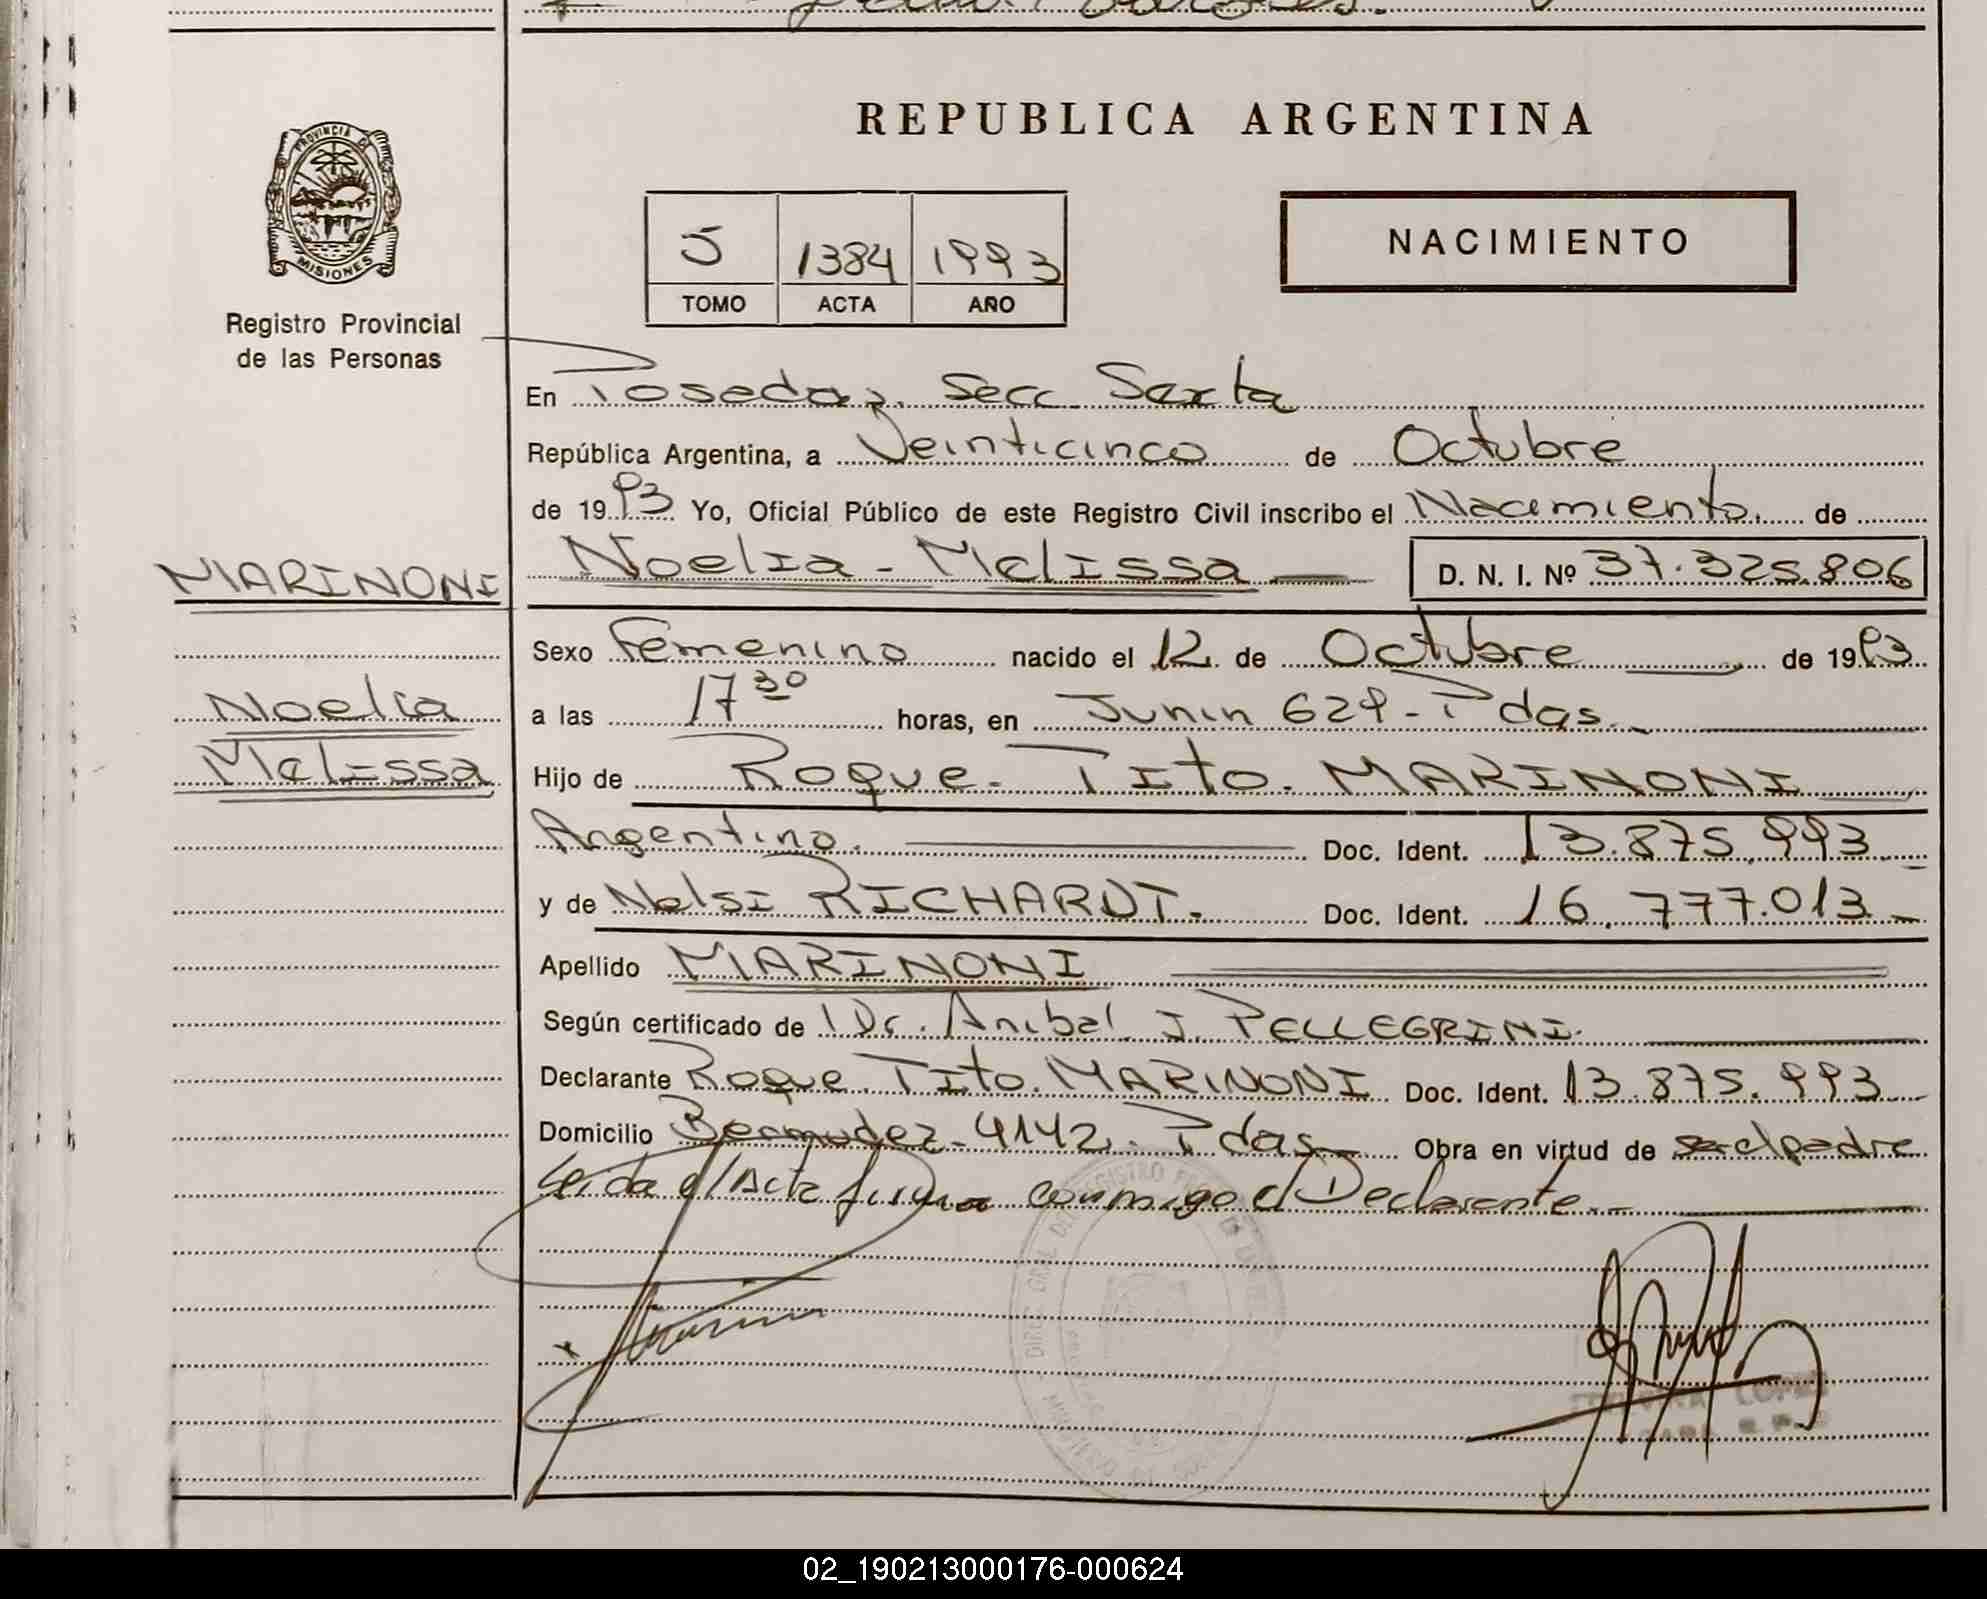 REPUBLICA ARGENTINA
PROVINCIA DE
MISIONES
Registro Provincial
de las Personas
5 1384 1993
TOMO ACTA AÑO
NACIMIENTO
En Posadas, Secc. Sexta
República Argentina, a Veinticinco de Octubre
de 1993 Yo, Oficial Público de este Registro Civil inscribo el Nacimiento. de
MARINONI
Noelia
Melissa
Noelia - Melissa D. N. I. Nº 37.325.806
Sexo Femenino nacido el 12 de Octubre de 1993
a las 17 30 horas, en Junin 629 - Pdas.
Hijo de Roque. Tito. MARINONI
Argentino. Doc. Ident. 13.875.993
y de Nelsi RICHARDT. Doc. Ident. 16.777.013
Apellido MARINONI
Según certificado de Dr. Anibal J. PELLEGRINI.
Declarante Roque. Tito. MARINONI Doc. Ident. 13.875.993
Domicilio Bermudez - 4142. Pdas. Obra en virtud de ser el padre
Leida el Acta firma conmigo el Declarante.
02_190213000176-000624